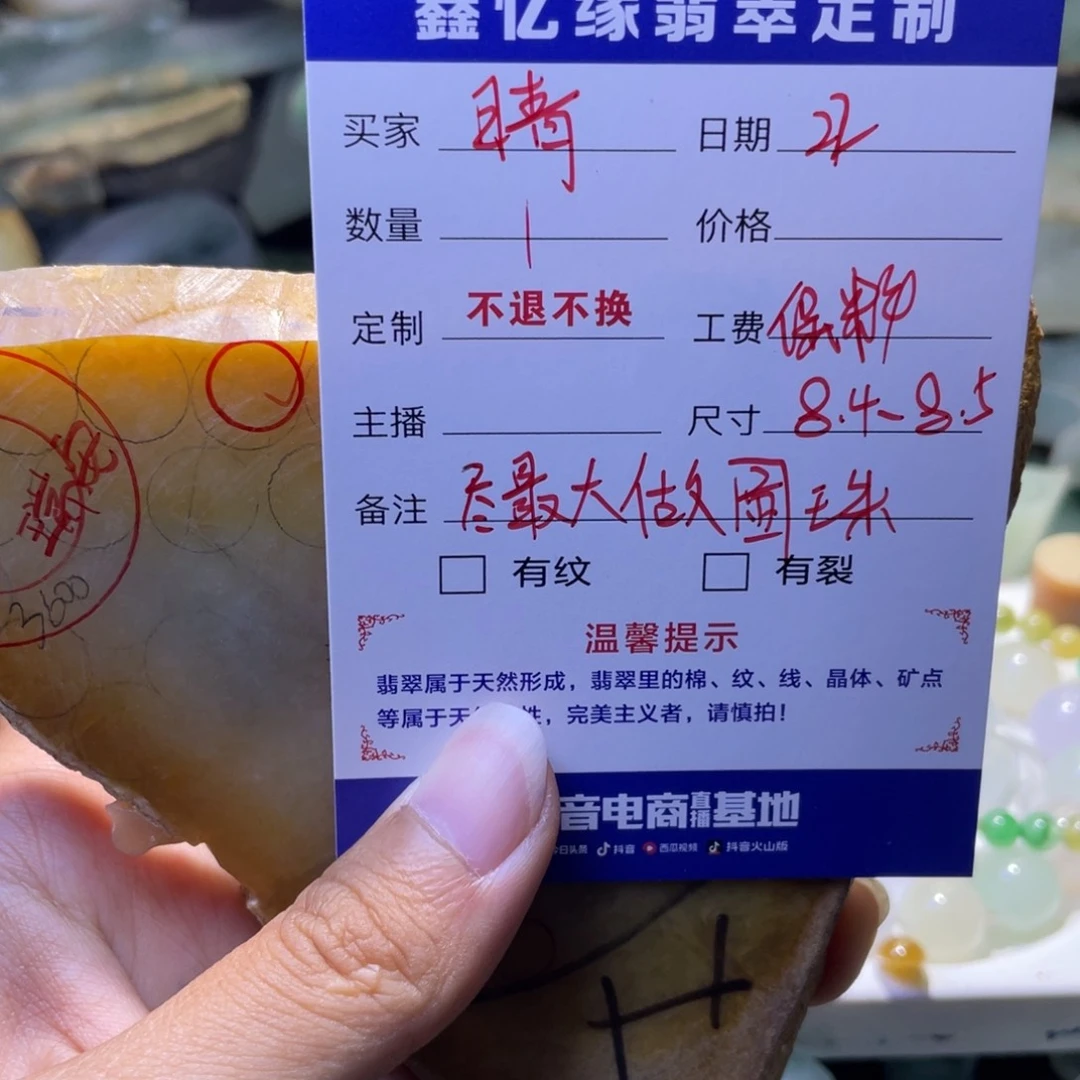 鑫亿缘翡翠定制
买家 晴 日期
数量 1 价格
定制 不退不换 工费
主播 尺寸 8.4-8.5
备注 尽最大做 圆珠
有纹 有裂
温馨提示
翡翠属于天然形成，翡翠里的棉、纹、线、晶体、矿点
等属于天 性，完美主义者，请慎拍！
音电商直播基地
今日头条 抖音 西瓜视频 抖音火山版
3600